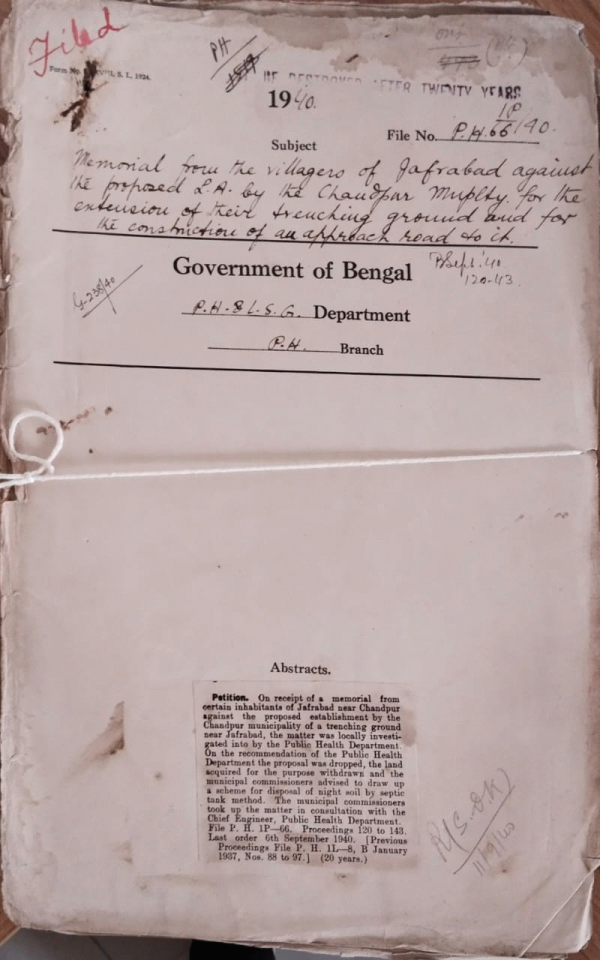 Filed
PH
Form No.
S. I., 1924.
BE DESTROYED AFTER TWENTY YEARS
1940.
File No. P.H. 1P/66/40.
Subject
Memorial from the villagers of Jafrabad against
the proposed L.A. by the Chandpur Muplty. for the
extension of their trenching ground and for
the construction of an approach road to it.
Government of Bengal
B/Sept '40
120-43
G-238/40
P.H. & L.S.G. Department
P.H. Branch
Abstracts.
Petition. On receipt of a memorial from
certain inhabitants of Jafrabad near Chandpur
against the proposed establishment by the
Chandpur municipality of a trenching ground
near Jafrabad, the matter was locally investi-
gated into by the Public Health Department.
On the recommendation of the Public Health
Department the proposal was dropped, the land
acquired for the purpose withdrawn and the
municipal commissioners advised to draw up
a scheme for disposal of night soil by septic
tank method. The municipal commissioners
took up the matter in consultation with the
Chief Engineer, Public Health Department.
File P. H. 1P—66. Proceedings 120 to 143.
Last order 6th September 1940. [Previous
Proceedings File P. H. 1L—8, B January
1937, Nos. 88 to 97.] (20 years.)